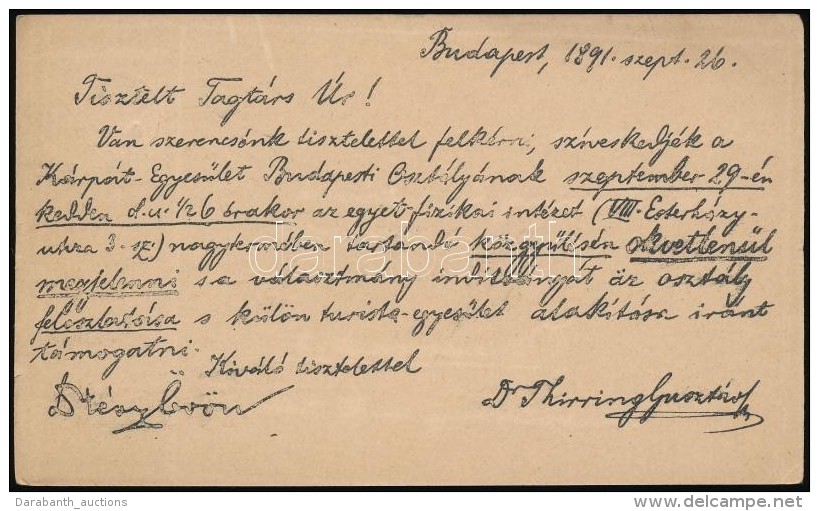 Budapest, 1891. szept. 26.
Tisztelt Tagtárs Úr!
Van szerencsénk tisztelettel felkérni, sziveskedjék a
Kárpát-Egyesület Budapesti Osztályának szeptember 29-én
kedden d.u. ½6 órakor az egyet. fizikai intézet (VIII. Esterházy-
utcza 3. sz.) nagytermében tartandó közgyülésén okvetlenül
megjelenni s a választmány inditványát az osztály
feloszlatása s külön turista-egyesület alakitása iránt
támogatni.
Kiváló tisztelettel
Dr Thirring Gusztáv
darabanth
Darabanth_auctions
delcampe.net